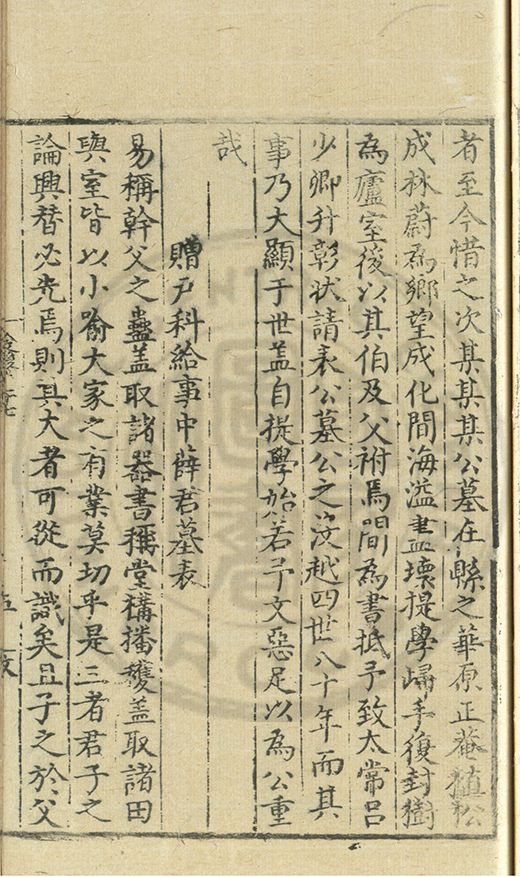 者至今惜之次某某某公墓在縣之華原正菴植松
成林蔚為鄉望成化間海溢盡壞提學歸手復封樹
為廬室後以其伯及父祔焉間為書抵予致太常呂
少卿升彰状請表公墓公之沒越四世八十年而其
事乃大顯于世盖自提學始若予文惡足以為公重
哉
贈户科給事中薛君墓表
易稱幹父之蠱盖取諸器書稱堂構播穫盖取諸田
與室皆以小喻大家之有業莫切乎是三者君子之
論興替必先焉則其大者可從而識矣且子之於父